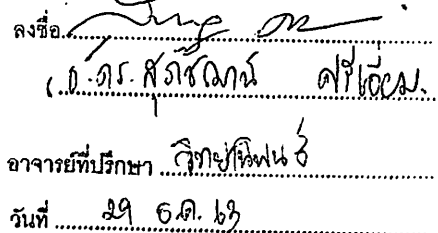 ลงชื่อ
(อ.ดร.สุภัชฌาน์ ศรีเอี่ยม.
อาจารย์ที่ปรึกษา วิทยานิพนธ์
วันที่ 29 ธ.ค. 63